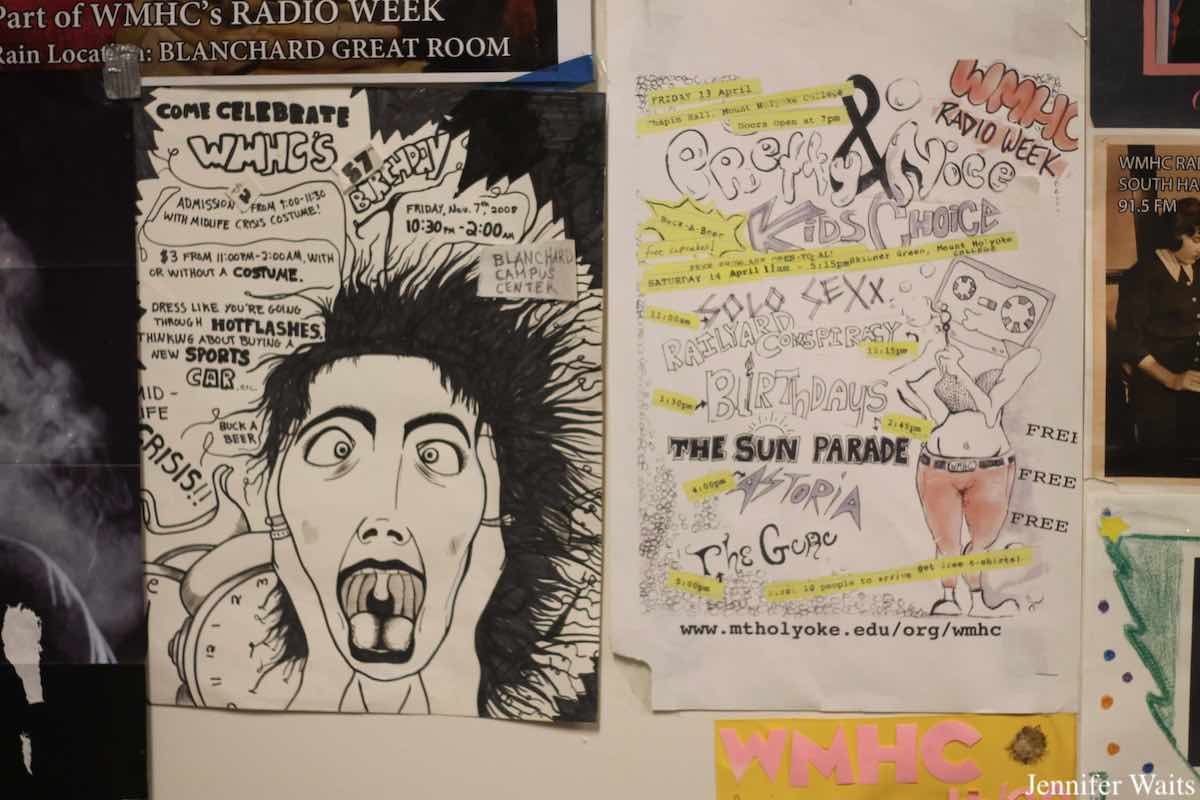 Part of WMHC's RADIO WEEK
Rain Location: BLANCHARD GREAT ROOM
COME CELEBRATE
WMHC'S
57
BIRTHDAY
ADMISSION FROM 9:00-11:30
WITH MIDLIFE CRISIS COSTUME!
FRIDAY, NOV. 7th, 2008
10:30PM - 2:00AM
$3 FROM 11:00PM-2:00AM, WITH
OR WITHOUT A COSTUME.
BLANCHARD
CAMPUS
CENTER
DRESS LIKE YOU'RE GOING
THROUGH HOTFLASHES,
THINKING ABOUT BUYING A
NEW SPORTS
CAR, etc.
MID-
LIFE
CRISIS!!
BUCK A
BEER
FRIDAY 13 April
Chapin Hall, Mount Holyoke College
Doors Open at 7pm
WMHC
RADIO WEEK
Pretty & Nice
Buck-A-Beer
free cupcakes!
KIDS CHOICE
FREE FROM AND OPEN TO AL!
SATURDAY 14 April 11am - 5:15pm Skinner Green, Mount Holyoke
COLLEGE
11:00am
SOLO SEXX
RAILYARD CONSPIRACY
12:15pm
1:30pm
BIRTHDAYS
2:45pm
THE SUN PARADE
4:00pm
ASTORIA
The Gunc
5:00pm
10 people to arrive get free t-shirts!
WMHC
FREE
FREE
FREE
www.mtholyoke.edu/org/wmhc
WMHC RA
SOUTH HA
91.5 FM
WMHC
Jennifer Waits